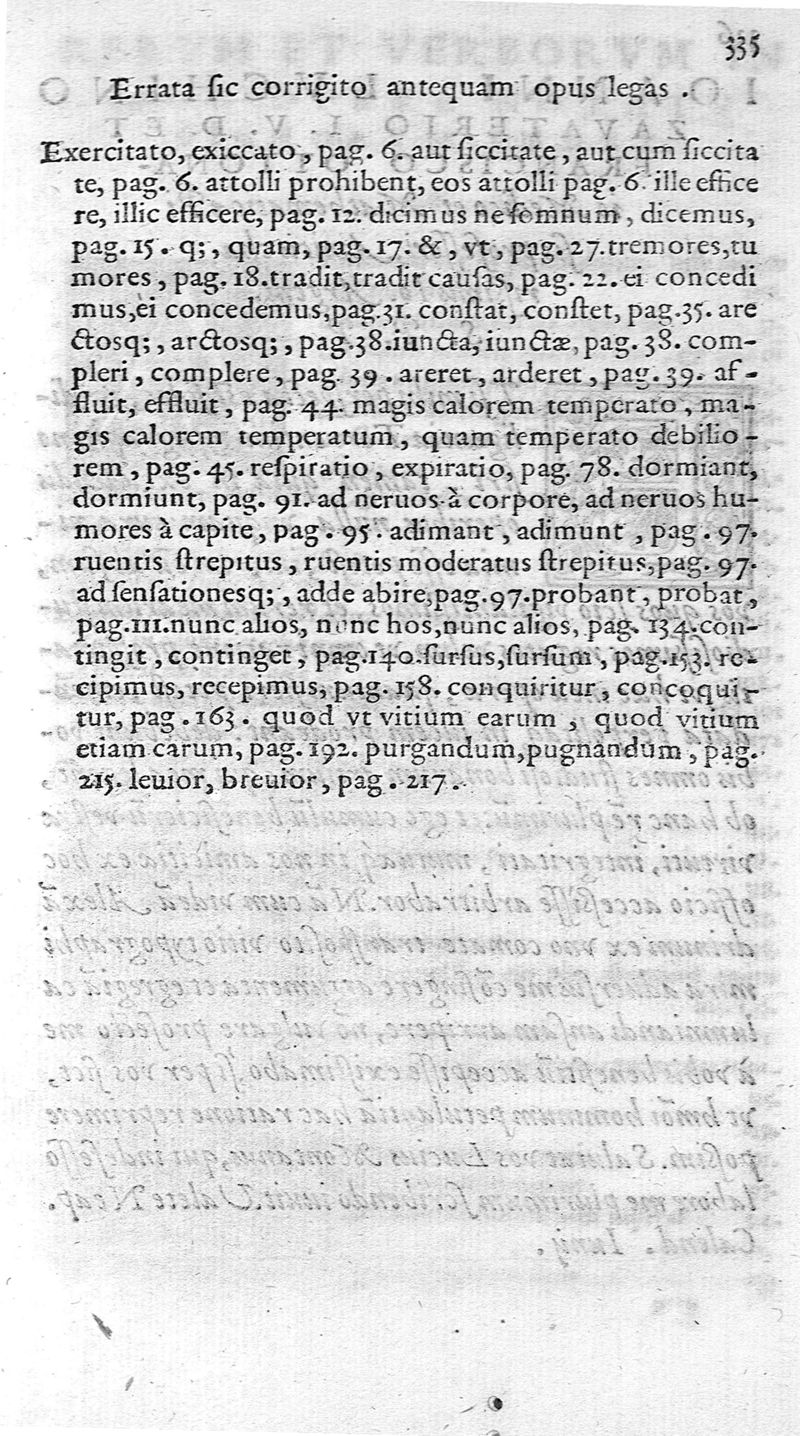 335
Errata ſic corrigito antequam opus legas .
Exercitato, exiccato, pag. 6. aut ſiccitate, aut cum ſiccita
te, pag. 6. attolli prohibent, eos attolli pag. 6 ille effice
re, illic efficere, pag. 12. dicimus ne ſomnum, dicemus,
pag. 15. q;, quam, pag. 17. &, vt, pag. 27. tremores, tu
mores, pag. 18. tradit, tradit cauſas, pag. 22. ei concedi
mus, ei concedemus, pag. 31. conſtat, conſtet, pag. 35. are
ctosq;, arctosq;, pag. 38. iuncta, iunctæ, pag. 38. com-
pleri, complere, pag. 39. areret, arderet, pag. 39. af-
fluit, effluit, pag. 44. magis calorem temperato, ma-
gis calorem temperatum, quam temperato debilio-
rem, pag. 45. reſpiratio, expiratio, pag. 78. dormiant,
dormiunt, pag. 91. ad neruos à corpore, ad neruos hu-
mores à capite, pag. 95. adimant, adimunt, pag. 97.
ruentis ſtrepitus, ruentis moderatus ſtrepitus, pag. 97.
ad ſenſationesq;, adde abire, pag. 97. probant, probat,
pag. 111. nunc alios, nunc hos, nunc alios, pag. 134. con-
tingit, continget, pag. 140. ſurſus, ſurſum, pag. 153. re-
cipimus, recepimus, pag. 158. conquiritur, concoqui-
tur, pag. 163. quod vt vitium earum, quod vitium
etiam earum, pag. 192. purgandum, pugnandum, pag.
215. leuior, breuior, pag. 217.